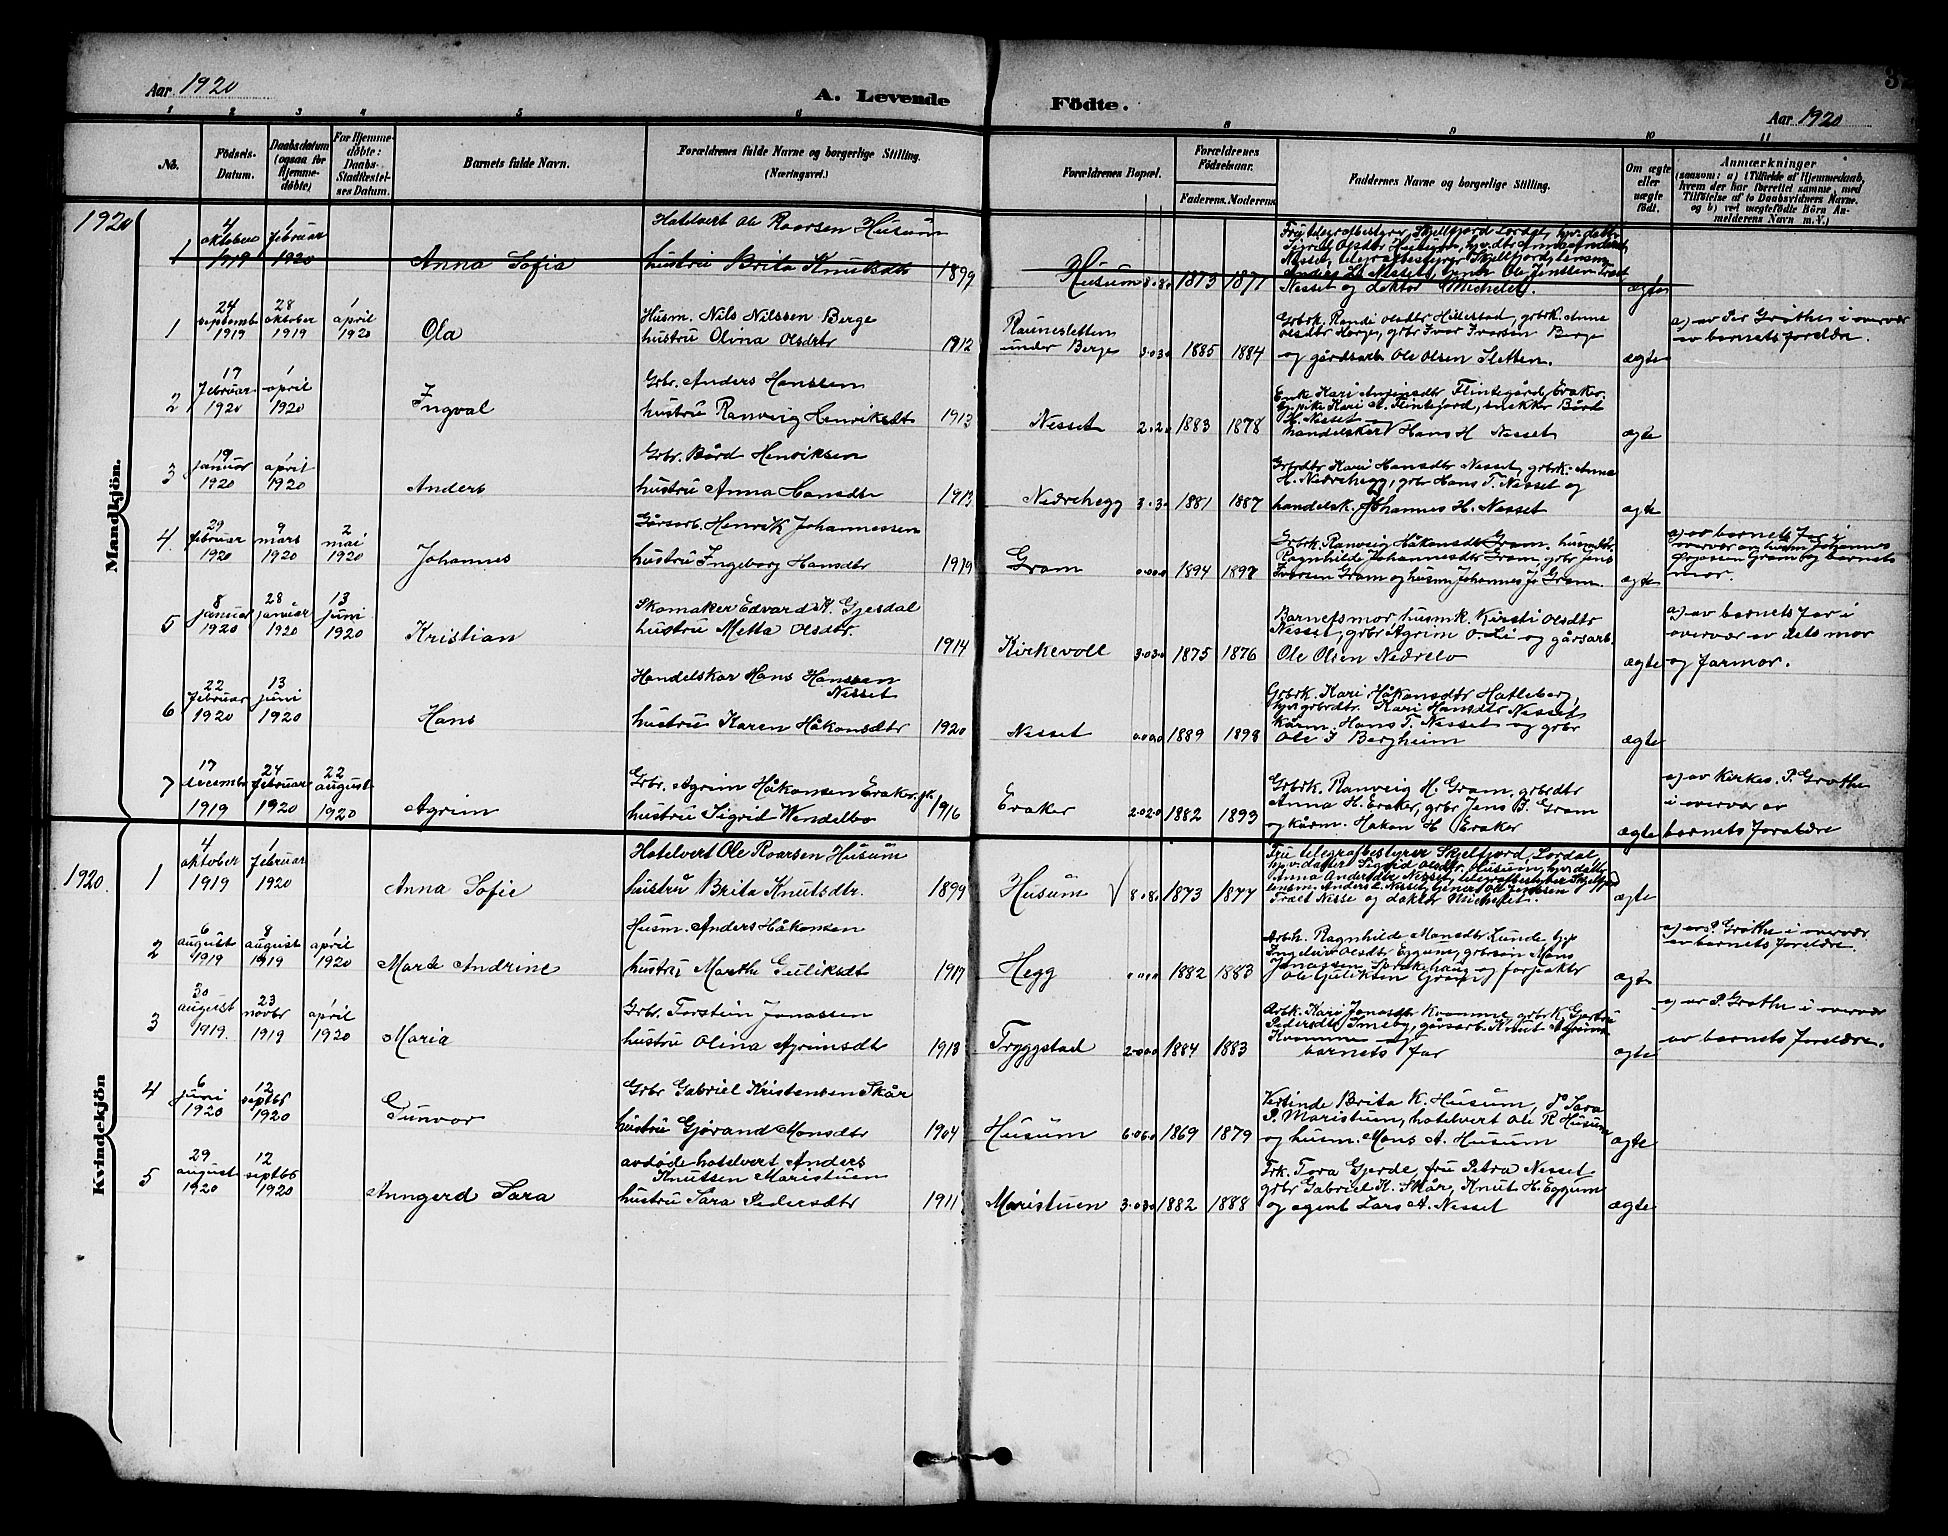 Aar 1920
A. Levende
Födte.
Aar 1920
1 2 3 4 5 6 8 9 10 11
No.
Födsels-Datum.
Daabsdatum (ogsaa for Hjemmedöbte)
For Hjemmedöbte: Daabs-Stadfæstelses Datum.
Barnets fulde Navn.
Forældrenes fulde Navne og borgerlige Stilling.
(Næringsvei.)
Forældrenes Bopæl.
Forældrenes Födselsaar.
Faderens. Moderens
Faddernes Navne og borgerlige Stilling.
Om ægte eller uægte födt.
Anmærkninger
(saasom: a) i Tilfælde af Hjemmedaab, hvem der har forrettet samme, med Tilföielse af to Daabsvidners Navne. og b) ved uægtefödte Börn Anmelderens Navn m. V.)
Mandkjön.
1920
1 4 oktober 1919 1 februar 1920 Anna Sofia
Hotelvert Ole Roarsen Husum
hustru Brita Knutsdtr 1899 Husum 8.8. 1873 1877
Nesset og doktor Michelet. ægte
1 24 septembr 1919 28 oktober 1919 1 april 1920 Ola
Husm. Nils Nilssen Berge
hustru Olina Olsdtr 1912
Raunesletten under Berge 3.030 1885 1884
Grbrk. Randi Olsdtr Hillestad, grbrk. Anne
Olsdtr Borge, grbr Ivar Ivarsen Berge
og gårdsarb Ole Olsen Sletten. ægte
a) av P. Grothe i overvær
av barnets foreldre.
2 17 februar 1920 1 april 1920 Ingval
Grbr. Anders Hanssen
hustru Ranveig Henriksdt 1913 Nesset 2.20 1883 1878
H. Nesset
handelskar Hans H Nesset ægte
3 19 januar 1920 1 april 1920 Anders
Grbr. Bård Henriksen
hustru Anna Hansdtr 1913 Nedrehegg 3.30 1881 1887
Grbrdtr Kari Hansdtr Nesset, grbrk. Anna
H. Nedrehegg, grbr Hans T. Nesset og
handelsk. Johannes H. Nesset ægte
4 29 februar 1920 9 mars 1920 2 mai 1920 Johannes
Gårsarb. Henrik Johannessen
hustru Ingeborg Hansdtr 1919 Gram 0.000 1894 1897
Grbrk. Ranveig Håkonsdtr Gram, husmdtr.
Ragnhilde Johannesdtr Gram, grbr Jens
Ivarsen Gram og husm Johannes J. Gram ægte
a) av barnets far i
overvær av husm Johannes
Gram og barnets
mor.
5 8 januar 1920 28 januar 1920 13 juni 1920 Kristian
Skomaker Edvard K. Gjesdal
hustru Metta Olsdtr. 1914 Kirkevoll 3.030 1875 1876
Barnets mor, husmk. Kirsti Olsdtr
Nesset, grbr Agrim O. Li og gårsarb.
Ole Olsen Nedrelo ægte
a) av barnets far i
overvær av dets mor
og farmor.
6 22 februar 1920 13 juni 1920 Hans
Handelskar Hans Hanssen
Nesset
hustru Karen Håkonsdtr 1920 Nesset 0.000 1889 1898
Grbrk. Kari Håkonsdtr Hatleberg,
hpv grbrdtr. Kari Hansdtr Nesset
kårm. Hans T. Nesset og grbr
Ole I Bergheim ægte
7 17 decembr 1919 24 februar 1920 22 august 1920 Agrim
Grbr. Agrim Håkonsen Eraker
hustru Sigrid Wendelbo 1916 Eraker 2.020 1882 1893
Grbrk. Ranveig H. Gram, grbrdtr
Anna H. Eraker, grbr Jens J. Gram
og kårm. Håkon H Eraker ægte
a) av Kirkes. P. Grothe
i overvær av
barnets foreldre
Kvindekjön
1920.
1 4 oktober 1919 1 februar 1920 Anna Sofie
Hotelvert Ole Roarsen Husum
hustru Brita Knutsdtr. 1899 Husum 8.8. 1873 1877
Fru telegrafbestyrer Skjelfjord, Lærdal,
hpv. datter Sigrid Olsdtr. Husum, hpv. datter
Anna Andersdtr Nesset, telegrafbestyrer Skjelfjord
og doktor Michelet. ægte
2 6 august 1919 8 august 1919 1 april 1920 Marta Andrine
Husm. Anders Håkonsen
hustru Marthe Guliksdt 1917 Hegg 0.000 1882 1883
Ragnhilde Monsdtr Lunde hpv
Ingeleiv Olsdtr Eggum, grbrsøn Mons
ægte
a) av P. Grothe i overvær
av barnets foreldre
3 30 august 1919. 23 novbr 1919 1 april 1920 Maria
Grbr. Torstein Jonassen
hustru Olina Agrimsdtr 1913 Tryggstad 2.000 1884 1883
Kari Jonasdtr Kvamme, grbrk
Pedersdtr Smeby, gårsarb. Knut Agrimsen
Kvamme og
barnets far ægte
a) av P. Grothe i overvær
av barnets foreldre.
4 6 juni 1920 12 septbr 1920 Gunvor
Grbr Gabriel Kristensen Skår
hustru Gjørand Monsdtr 1904 Husum 6.060 1869 1879
Vertinde Brita K. Husum, do Sara
P. Maristuen, hotelvert Ole R Husum
og husm. Mons A. Husum ægte
5 29 august 1920 12 septbr 1920 Anngerd Sara
avdøde hotelvert Anders
Knutsen Maristuen
hustru Sara Pedersdtr 1911 Maristuen 3.030 1882 1888
Frk. Tora Gjerde, fru Petra Nesset
grbr Gabriel K. Skår, Knut H. Eggum
og agent Lars A. Nesset ægte